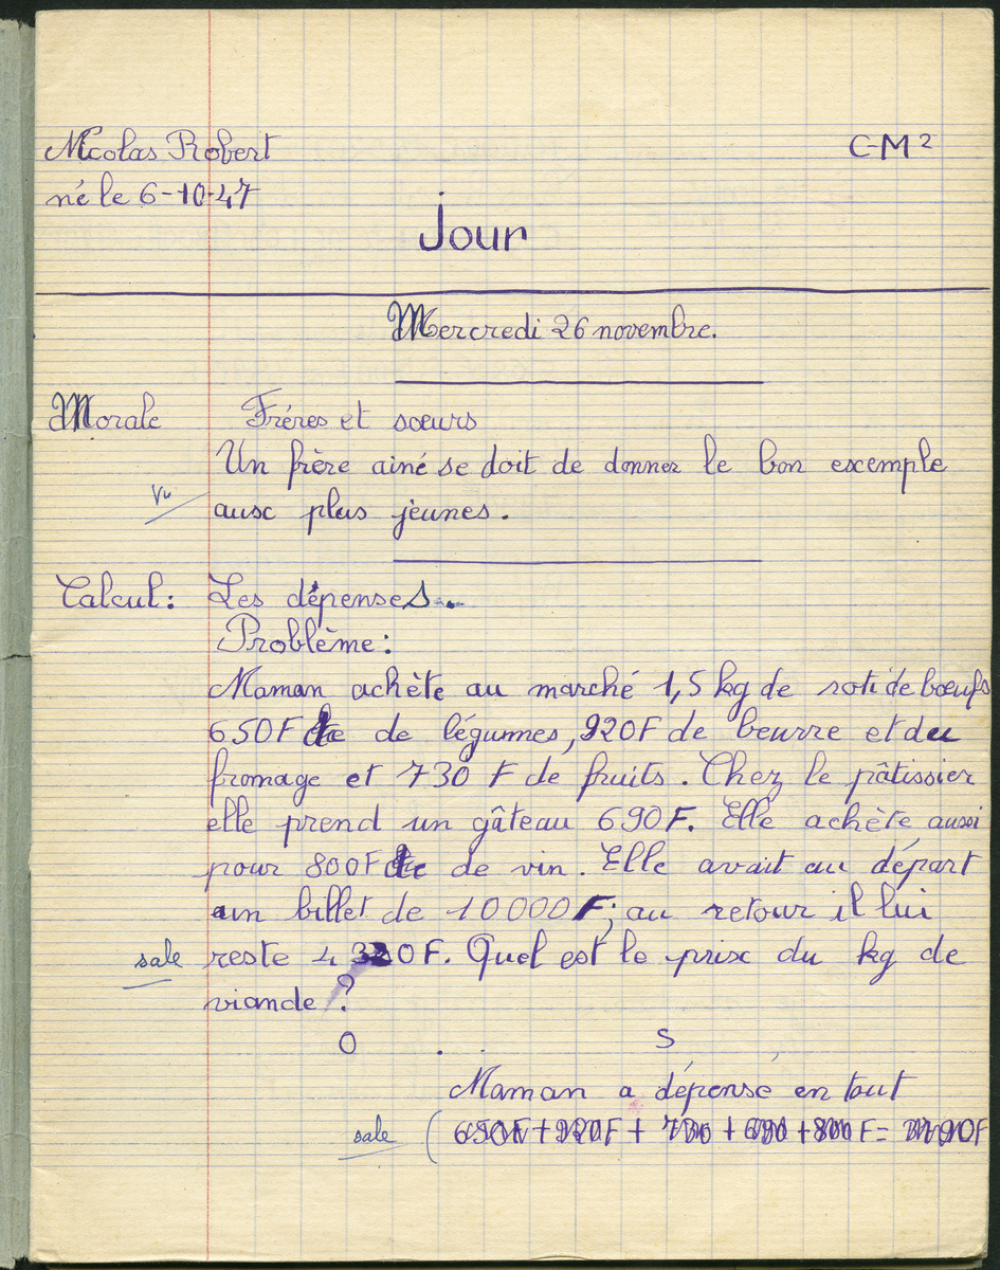 Nicolas Robert
CM2
né le 6-10-47
Jour
Mercredi 26 novembre.
Morale Fréres et sœurs
Un frère ainé se doit de donner le bon exemple
Vu
aux plus jeunes.
Calcul: Les dépenses.
Problème:
Maman achète au marché 1,5 kg de roti de bœufs
650F de légumes, 920F de beurre et du
fromage et 730 F de fruits. Chez le pâtissier
elle prend un gâteau 690F. Elle achète aussi
pour 800F de vin. Elle avait au départ
un billet de 10000F; au retour il lui
sale reste 4 320F. Quel est le prix du kg de
viande ?
O S
Maman a dépensé en tout
sale ( 650F + 920F + 730 + 690 + 800 F =